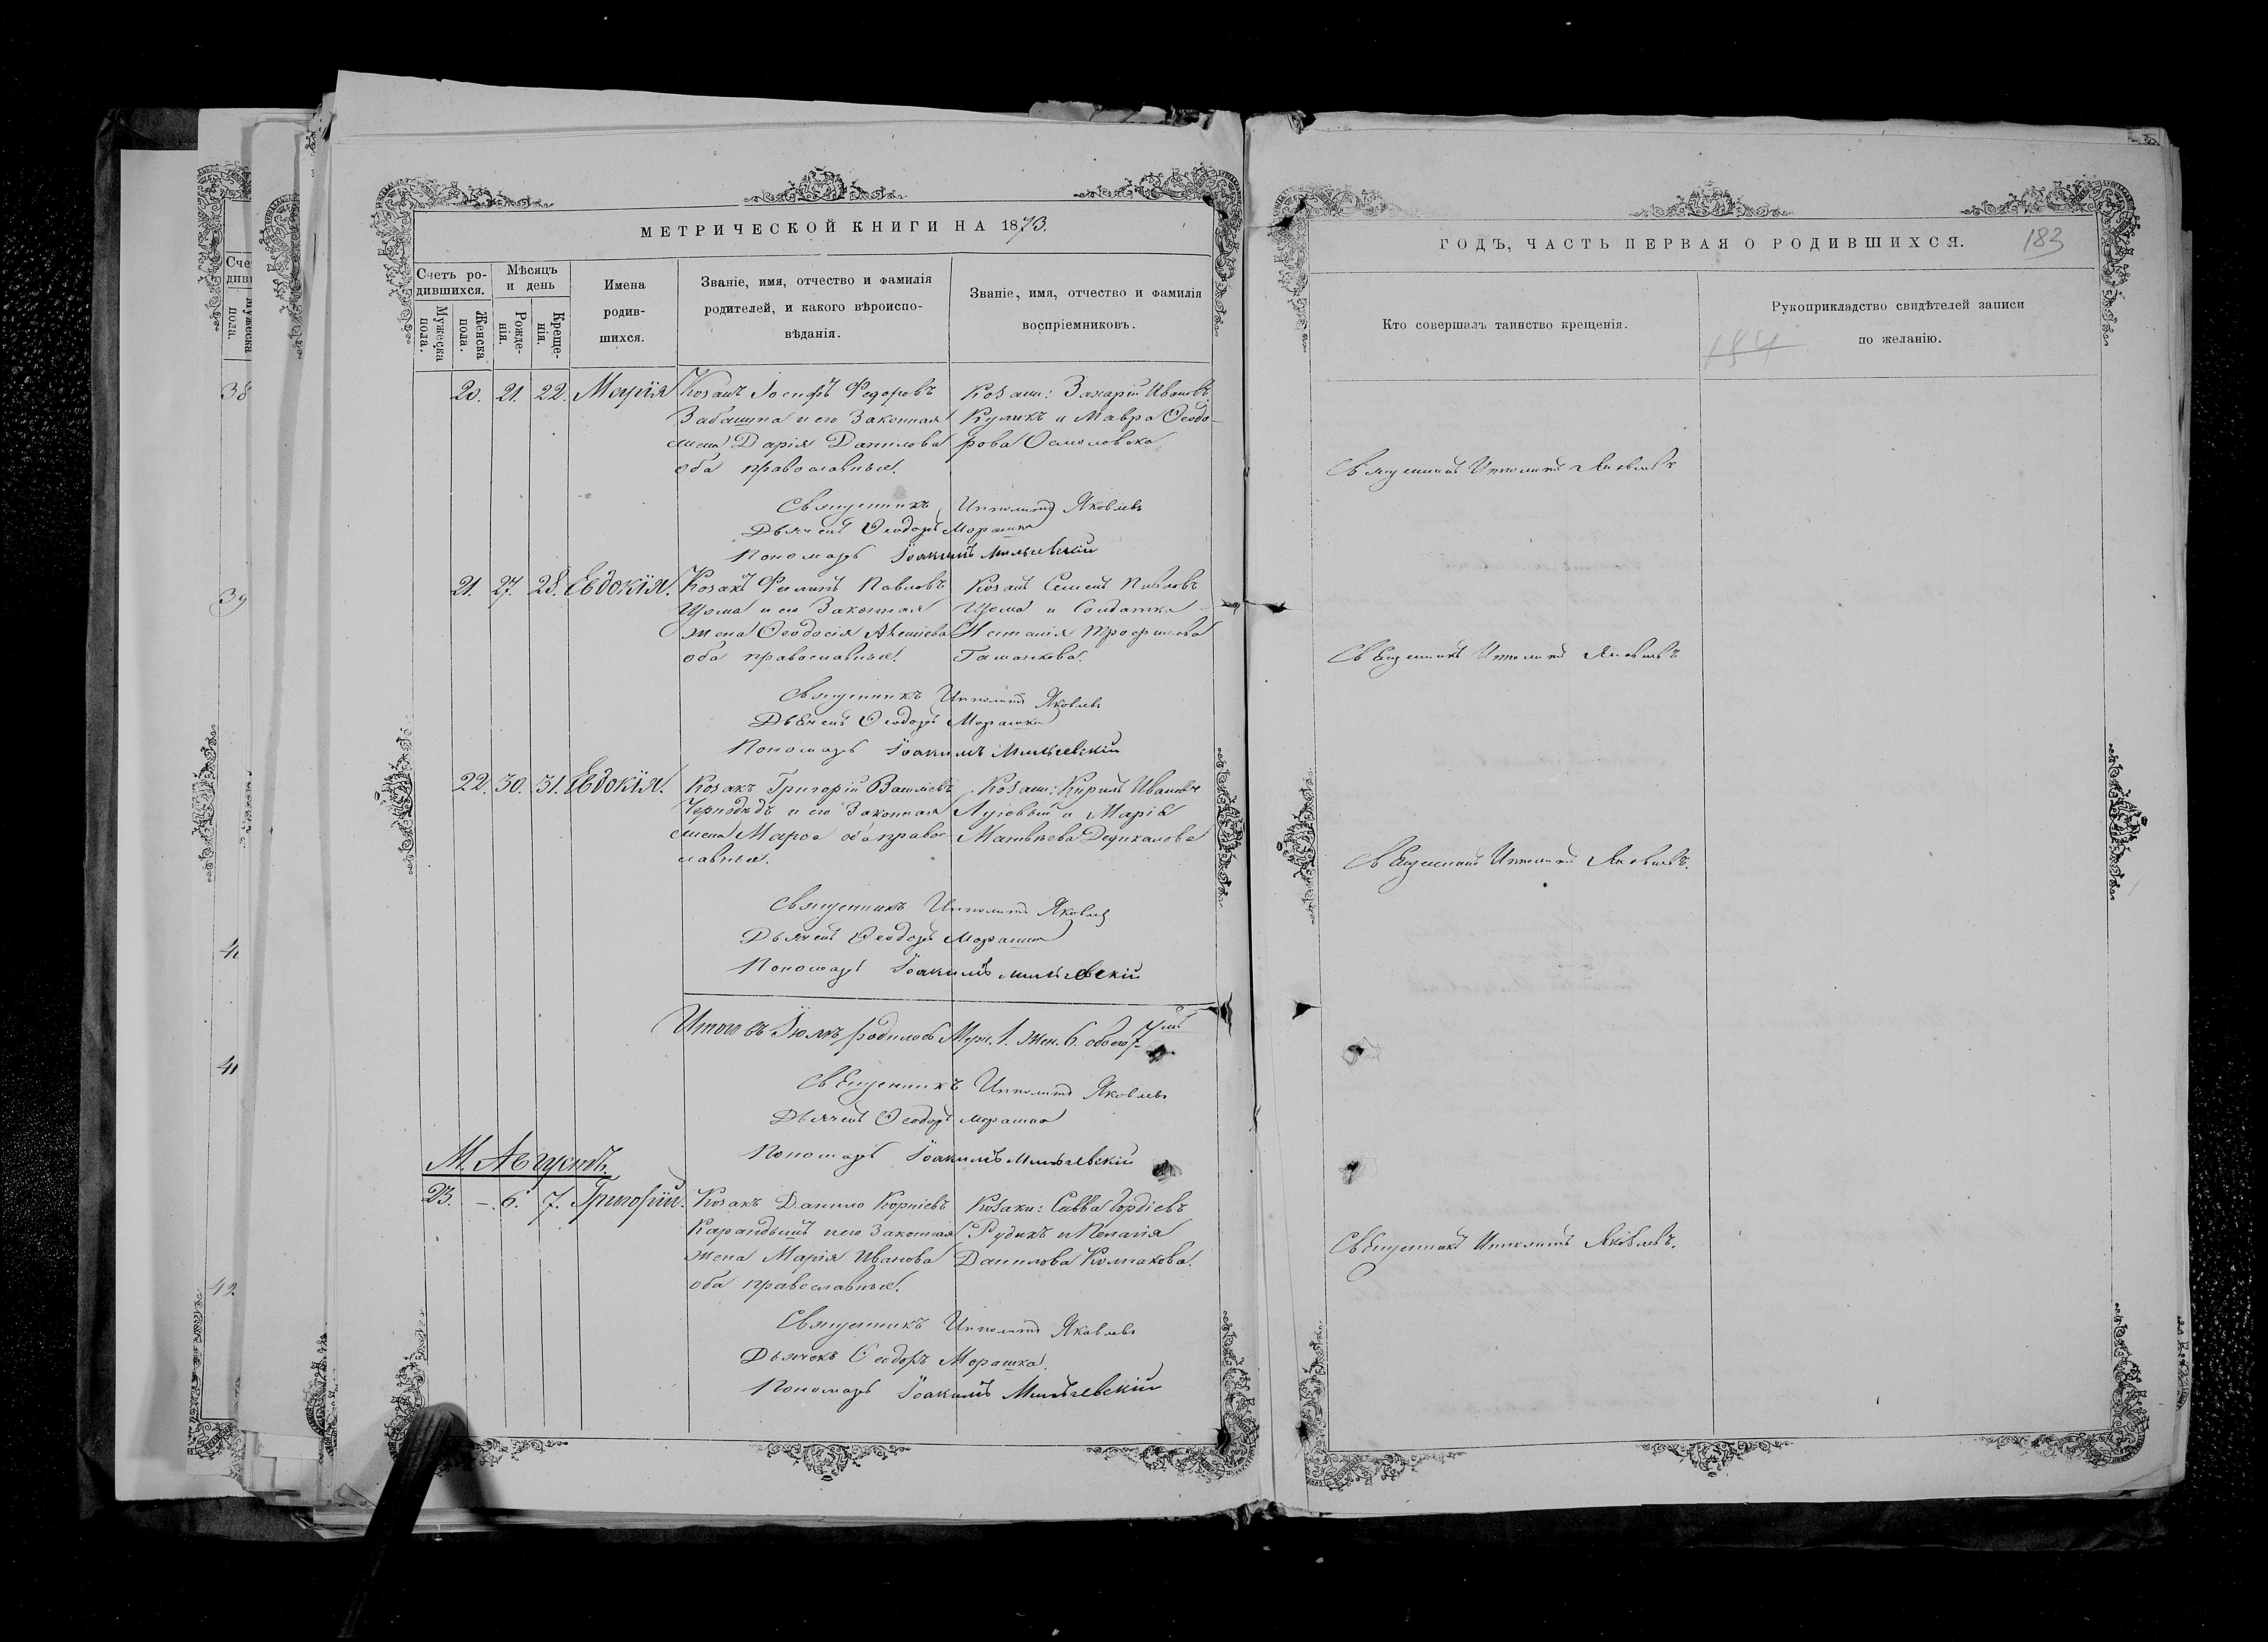 МЕТРИЧЕСКОЙ КНИГИ НА 1873.
Счетъ ро-
дившихся.
Мужеска
пола.
Женска
пола.
Мѣсяцъ
и день
Рожде-
нія.
Креще-
нія.
Имена
родив-
шихся.
Званіе, имя, отчество и фамилія
родителей, и какого вѣроиспо-
вѣданія.
Званіе, имя, отчество и фамилія
воспріемниковъ.
20. 21. 22. Марія
Козакъ Іосифъ Федоровъ
Забашта и его Законная
жена Дарія Данилова
оба православные.
Козаки: Захарій Ивановъ
Куликъ и Мавра Ѳеодо-
рова Осмоловска
Священникъ Ипполитъ Яковлевъ
Дьячекъ Ѳеодоръ Морашка
Пономарь Іоакимъ
21. 27. 28. Евдокія.
Козакъ Филипъ Павловъ
Щома и его Законная
жена Ѳеодосія
оба православные.
Козакъ Семенъ Павловъ
Щома и Солдатка
Наталія Трофимова
Священникъ Ипполитъ Яковлевъ
Дьячекъ Ѳеодоръ Морашка
Пономарь Іоакимъ
22. 30. 31. Евдокія.
Козакъ Григорій Василіевъ
Чернодѣдъ и его Законная
жена Марѳа оба право-
славные.
Козаки: Кирилъ Ивановъ
Луговый и Марія
Матвѣева
Священникъ Ипполитъ Яковлевъ
Дьячекъ Ѳеодоръ Морашка
Пономарь Іоакимъ
Итого въ Іюлѣ родилось Муж. 1. жен. 6. обоего 7
Священникъ Ипполитъ Яковлевъ
Дьячекъ Ѳеодоръ Морашка
Пономарь Іоакимъ
М. Августъ.
23. – 6. 7. Григорій.
Козакъ Данило Корніевъ
и его Законная
жена Марія Иванова
оба православные.
Козаки: Савва Гордіевъ
Рудикъ и Пелагія
Данилова Колпакова.
Священникъ Ипполитъ Яковлевъ
Дьячекъ Ѳеодоръ Морашка.
Пономарь Іоакимъ
ГОДЪ, ЧАСТЬ ПЕРВАЯ О РОДИВШИХСЯ.
183
Кто совершалъ таинство крещенія.
Рукоприкладство свидѣтелей записи
по желанію.
184
Священникъ Ипполитъ Яковлевъ
Священникъ Ипполитъ Яковлевъ
Священникъ Ипполитъ Яковлевъ.
Священникъ Ипполитъ Яковлевъ.
38
39
42